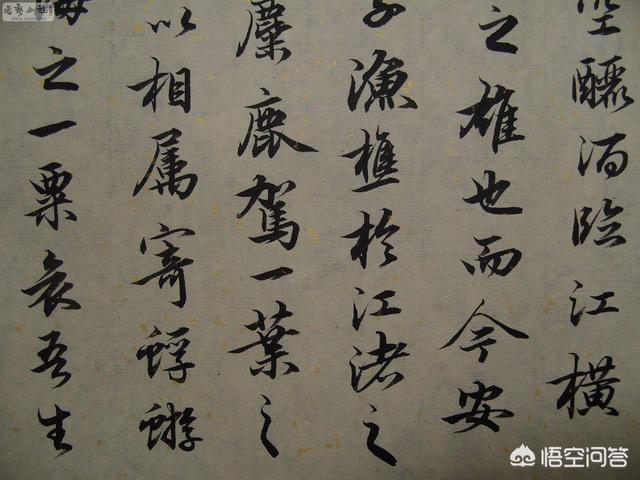 空酾酒临江横
之雄也而今安
子渔樵於江渚之
麋鹿驾一葉之
以相属寄蜉蝣
海之一粟哀吾生
悟空问答